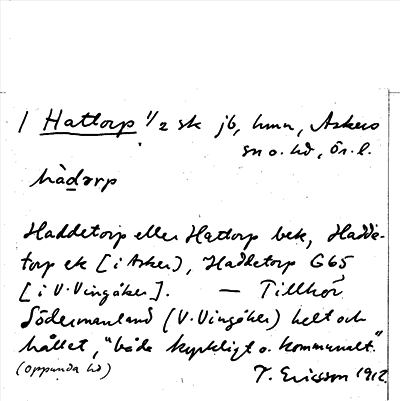 / Hattorp 1/2 sk jb, hmn, Askers
sn o. hd, Ör. l.
hàdarp
Haddetorp eller Hattorp bek, Hadde-
torp ek [i Asker), Haddetorp G65
[i V. Vingåker]. — Tillhör
Södermanland (V. Vingåker) helt och
hållet, "både kyrkligt o. kommunalt."
(Oppunda hd) T. Ericsson 1912